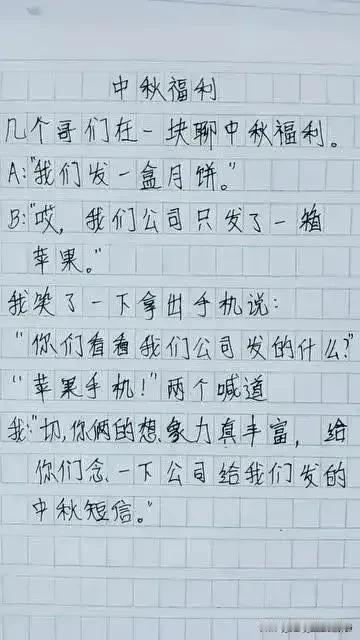 中秋福利
几个哥们在一块聊中秋福利。
A:"我们发一盒月饼。"
B:"哎，我们公司只发了一箱
苹果。"
我笑了一下拿出手机说：
"你们看看我们公司发的什么?"
"苹果手机!"两个喊道
我:"切,你俩的想象力真丰富，给
你们念一下公司给我们发的
中秋短信。"